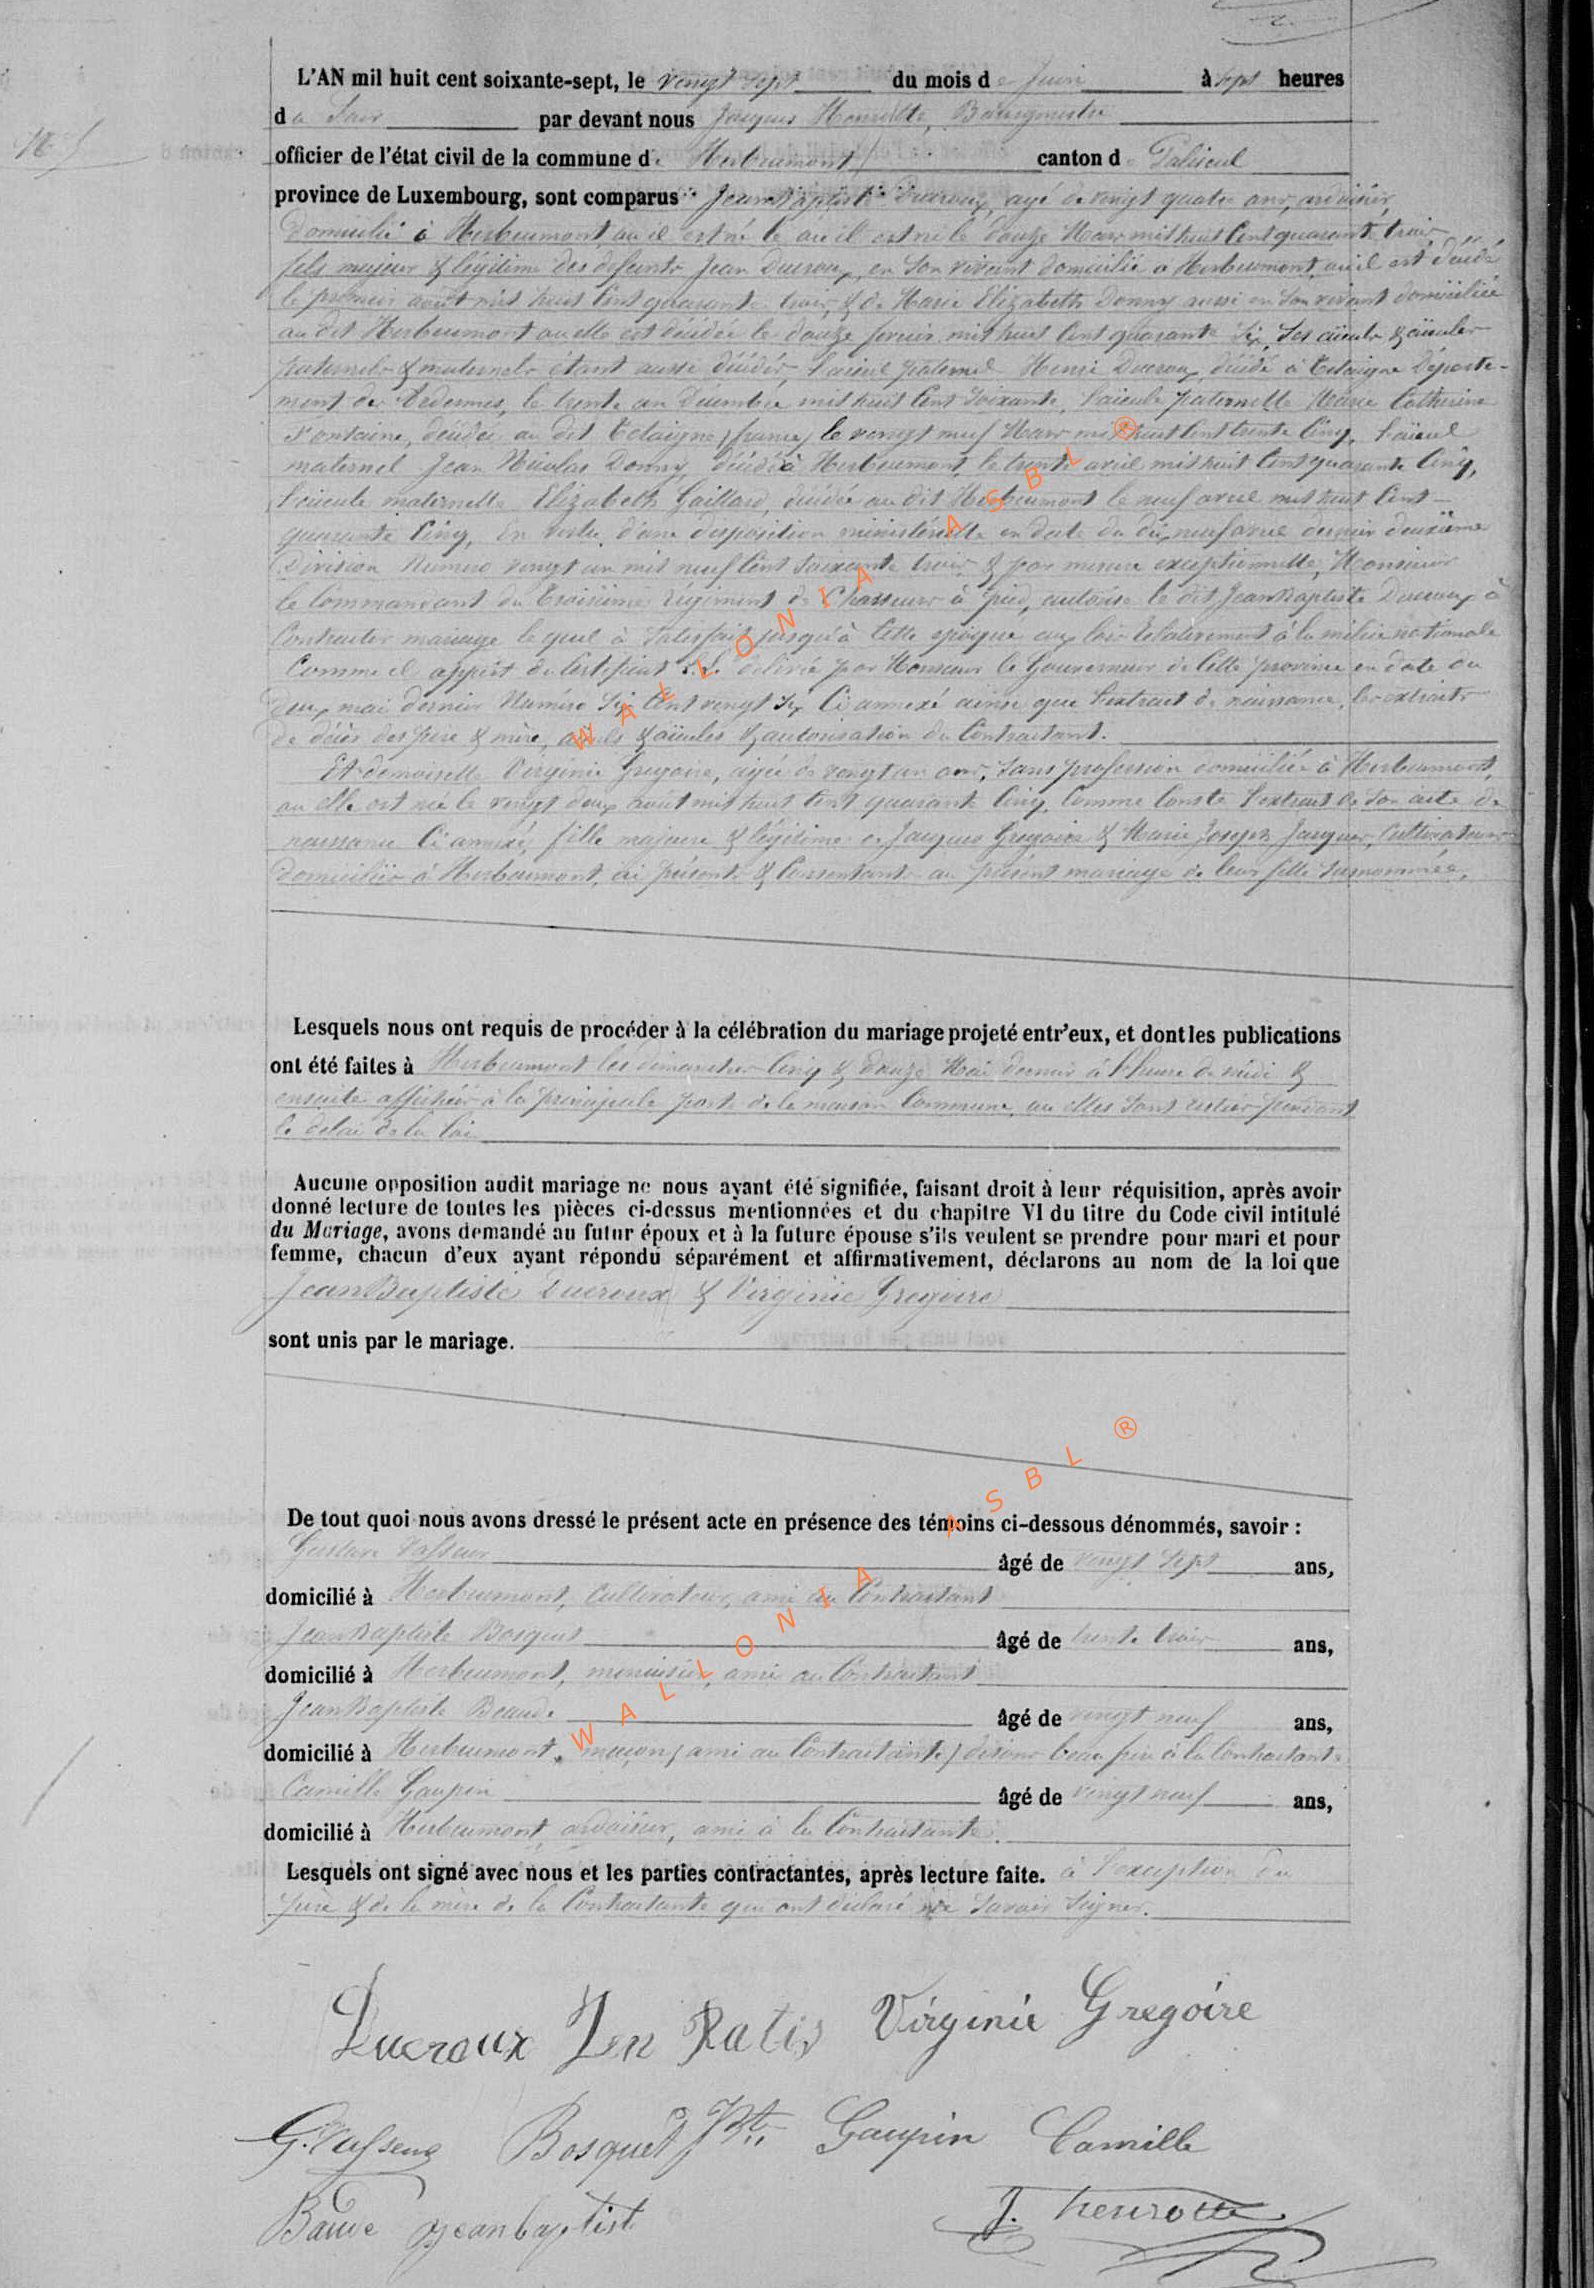 N° 5
L'AN mil huit cent soixante-sept, le vingt sept du mois de Juin à sept heures
du Soir par devant nous Jacques Henrotte, Bourgmestre
officier de l'état civil de la commune de Herbeumont canton de Paliseul
province de Luxembourg, sont comparus Jean Baptiste Ducroux, agé de vingt quatre ans, ardoisier,
Domicilié à Herbeumont, où il est né le où il est né le douze Mars mil huit Cent quarante trois,
fils majeur & légitime des defunts Jean Ducroux, en Son vivant domicilié à Herbeumont, où il est décédé
le premier août mil huit Cent quarante trois, & de Marie Elizabeth Donny aussi en Son vivant domiciliée
au dit Herbeumont où elle est décédée le douze fevrier mil huit Cent quarante Six, Ses aïeuls & aïeules
paternels & maternels étant aussi décédés, l'aïeul paternel Henri Ducroux, décédé à Tetaigne Départe-
ment des Ardennes, le trente un Décembre mil huit Cent Soixante, l'aïeule paternelle Marie Catherine
Fontaine, décédée au dit Tetaigne (france) le vingt neuf Mars mil huit Cent trente Cinq, l'aïeul
maternel Jean Nicolas Donny, décédé à Herbeumont, le trente avril mil huit Cent quarante Cinq,
l'aïeule maternelle Elizabeth Gaillard, décédée au dit Herbeumont le neuf avril mil huit Cent
quarante Cinq, En vertu d'une disposition ministérielle en date du dix neuf avril dernier deuxième
Division Numéro vingt un mil neuf Cent Soixante trois, & par mesure exceptionnelle, Monsieur
le Commandant du troisième régiment de Chasseurs à pied, autorise le dit Jean Baptiste Ducroux à
Contracter mariage le quel à Satisfait jusqu'à Cette époque aux lois Relativement à la milice nationale
Comme il appert du Certificat delivré par Monsieur le Gouverneur de Cette province en date du
deux mai dernier Numéro Six Cent vingt Six Ci annexé ainsi que l'extrait de naissance, les extraits
de décès des père & mère, aïeuls & aïeules & autorisation du Contractant.
Et demoiselle Virginie Gregoire, agée de vingt un ans, Sans profession domiciliée à Herbeumont,
où elle est née le vingt deux août mil huit Cent quarante Cinq, Comme Conste l'extrait de Son acte de
naissance Ci annexé, fille majeure & légitime de Jacques Gregoire & Marie Joseph Jacques, Cultivateurs
domiciliés à Herbeumont, ici présents & Consentants au présent mariage de leur fille Susnommée,
Lesquels nous ont requis de procéder à la célébration du mariage projeté entr'eux, et dont les publications
ont été faites à Herbeumont les dimanches Cinq & Douze Mai dernier à l'heure de midi &
ensuite affichées à la principale porte de la maison Commune, où elles Sont restées pendant
le délai de la loi
Aucune opposition audit mariage ne nous ayant été signifiée, faisant droit à leur réquisition, après avoir
donné lecture de toutes les pièces ci-dessus mentionnées et du chapitre VI du titre du Code civil intitulé
du Mariage, avons demandé au futur époux et à la future épouse s'ils veulent se prendre pour mari et pour
femme, chacun d'eux ayant répondu séparément et affirmativement, déclarons au nom de la loi que
Jean Baptiste Ducroux & Virginie Gregoire
sont unis par le mariage.
De tout quoi nous avons dressé le présent acte en présence des témoins ci-dessous dénommés, savoir :
Gustave Vasseur âgé de vingt Sept ans,
domicilié à Herbeumont, Cultivateur, ami au Contractant
Jean Baptiste Bosquet âgé de trente trois ans,
domicilié à Herbeumont, menuisier, ami au Contractant
Jean Baptiste Beaude âgé de vingt neuf ans,
domicilié à Herbeumont, maçon, (ami au Contractante) disons beau frère à la Contractante
Camille Gaupin âgé de vingt neuf ans,
domicilié à Herbeumont, ardoisier, ami à la Contractante.
Lesquels ont signé avec nous et les parties contractantes, après lecture faite. à l'exception du
père & de la mère de la Contractante qui ont déclaré ne Savoir Signer.
Ducroux Jen Batis Virginie Gregoire
G. Vasseur Bosquet JBte Gaupin Camille
Baude Jean baptist J. henrotte
WALLONIA ASBL ®
WALLONIA ASBL ®